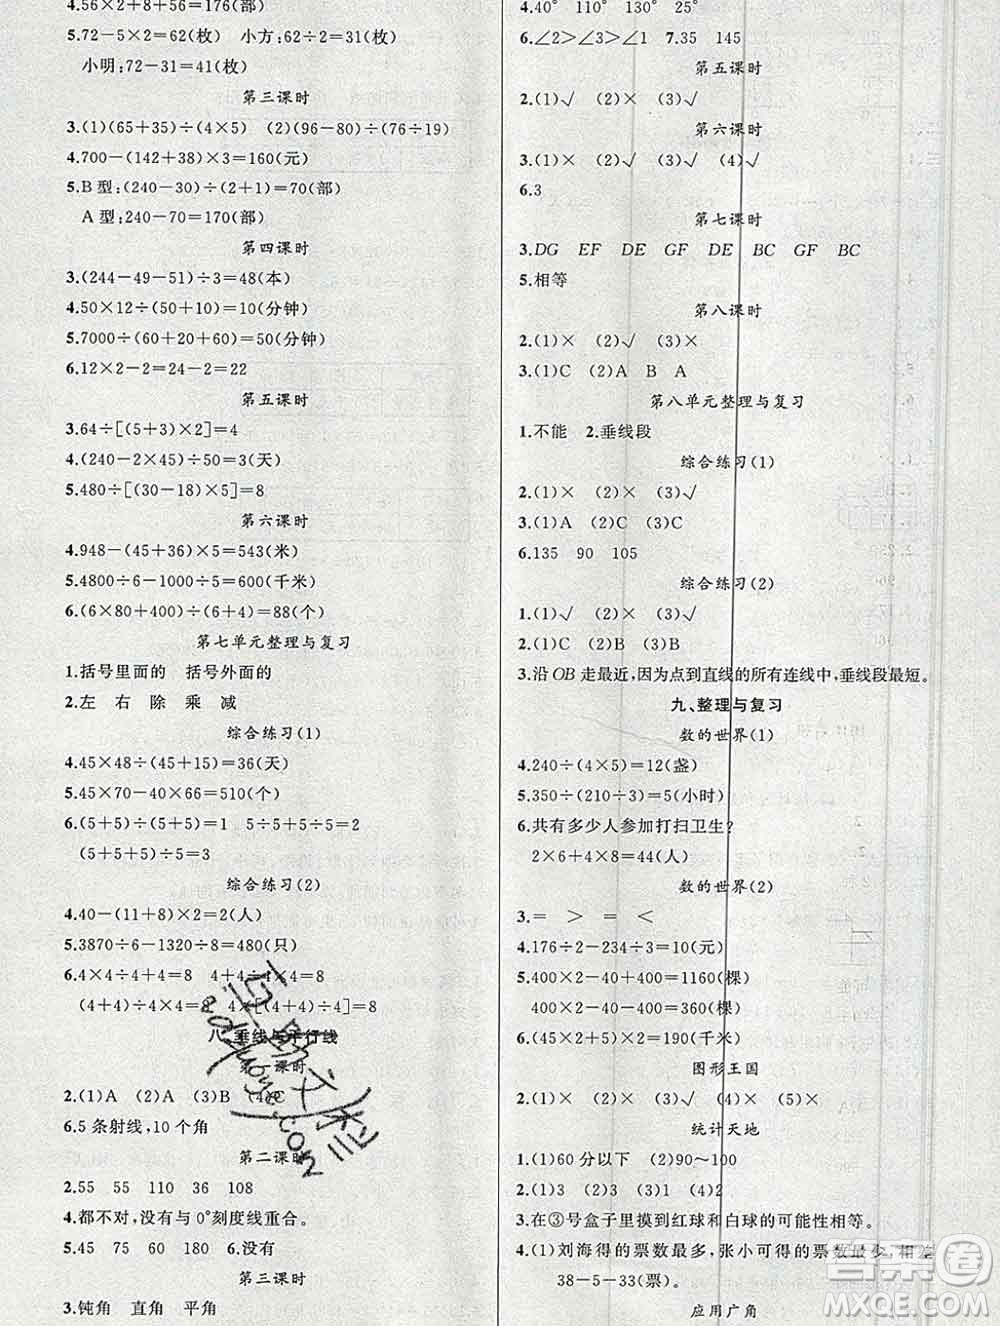 4.56×2+8+56=176(部)
5.72-5×2=62(枚) 小方:62÷2=31(枚)
小明:72-31=41(枚)
第三课时
3.(1)(65+35)÷(4×5) (2)(96-80)÷(76÷19)
4.700-(142+38)×3=160(元)
5.B型:(240-30)÷(2+1)=70(部)
A型:240-70=170(部)
第四课时
3.(244-49-51)÷3=48(本)
4.50×12÷(50+10)=10(分钟)
5.7000÷(60+20+60)=50(分钟)
6.12×2-2=24-2=22
第五课时
3.64÷[(5+3)×2]=4
4.(240-2×45)÷50=3(天)
5.480÷[(30-18)×5]=8
第六课时
4.948-(45+36)×5=543(米)
5.4800÷6-1000÷5=600(千米)
6.(6×80+400)÷(6+4)=88(个)
第七单元整理与复习
1.括号里面的 括号外面的
2.左 右 除 乘 减
综合练习(1)
4.45×48÷(45+15)=36(天)
5.45×70-40×66=510(个)
6.(5+5)÷(5+5)=1 5÷5+5÷5=2
(5+5+5)÷5=3
综合练习(2)
4.40-(11+8)×2=2(人)
5.3870÷6-1320÷8=480(只)
6.4×4÷4+4=8 4+4÷4×4=8
(4+4)÷4×4=8 4×[(4+4)÷4]=8
八、垂线与平行线
课时
2.(1)A (2)A (3)B (4)C
6.5条射线,10个角
第二课时
2.55 55 110 36 108
4.都不对,没有与0°刻度线重合。
5.45 75 60 180 6.没有
第三课时
3.钝角 直角 平角
4.40° 110° 130° 25°
6.∠2>∠3>∠1 7.35 145
第五课时
2.(1)√ (2)× (3)√
第六课时
3.(1)× (2)√ (3)√ (4)√
6.3
第七课时
3.DG EF DE GF DE BC GF BC
5.相等
第八课时
2.(1)× (2)√ (3)×
3.(1)C (2)A B A
第八单元整理与复习
1.不能 2.垂线段
综合练习(1)
2.(1)× (2)× (3)√
3.(1)A (2)C (3)C
6.135 90 105
综合练习(2)
1.(1)√ (2)× (3)√
2.(1)C (2)B (3)B
3.沿OB走最近,因为点到直线的所有连线中,垂线段最短。
九、整理与复习
数的世界(1)
4.240÷(4×5)=12(盏)
5.350÷(210÷3)=5(小时)
6.共有多少人参加打扫卫生?
2×6+4×8=44(人)
数的世界(2)
3.= > = <
4.176÷2-234÷3=10(元)
5.400×2-40+400=1160(棵)
400×2-40-400=360(棵)
6.(45×2+5)×2=190(千米)
图形王国
2.(1)× (2)× (3)√ (4)× (5)×
统计天地
1.(1)60分以下 (2)90~100
2.(1)3 (2)1 (3)1 (4)2
3.在③号盒子里摸到红球和白球的可能性相等。
4.(1)刘海得的票数最多,张小可得的票数最少,相差
38-5=33(票)。
应用广角
答案圈
MXQE.COM